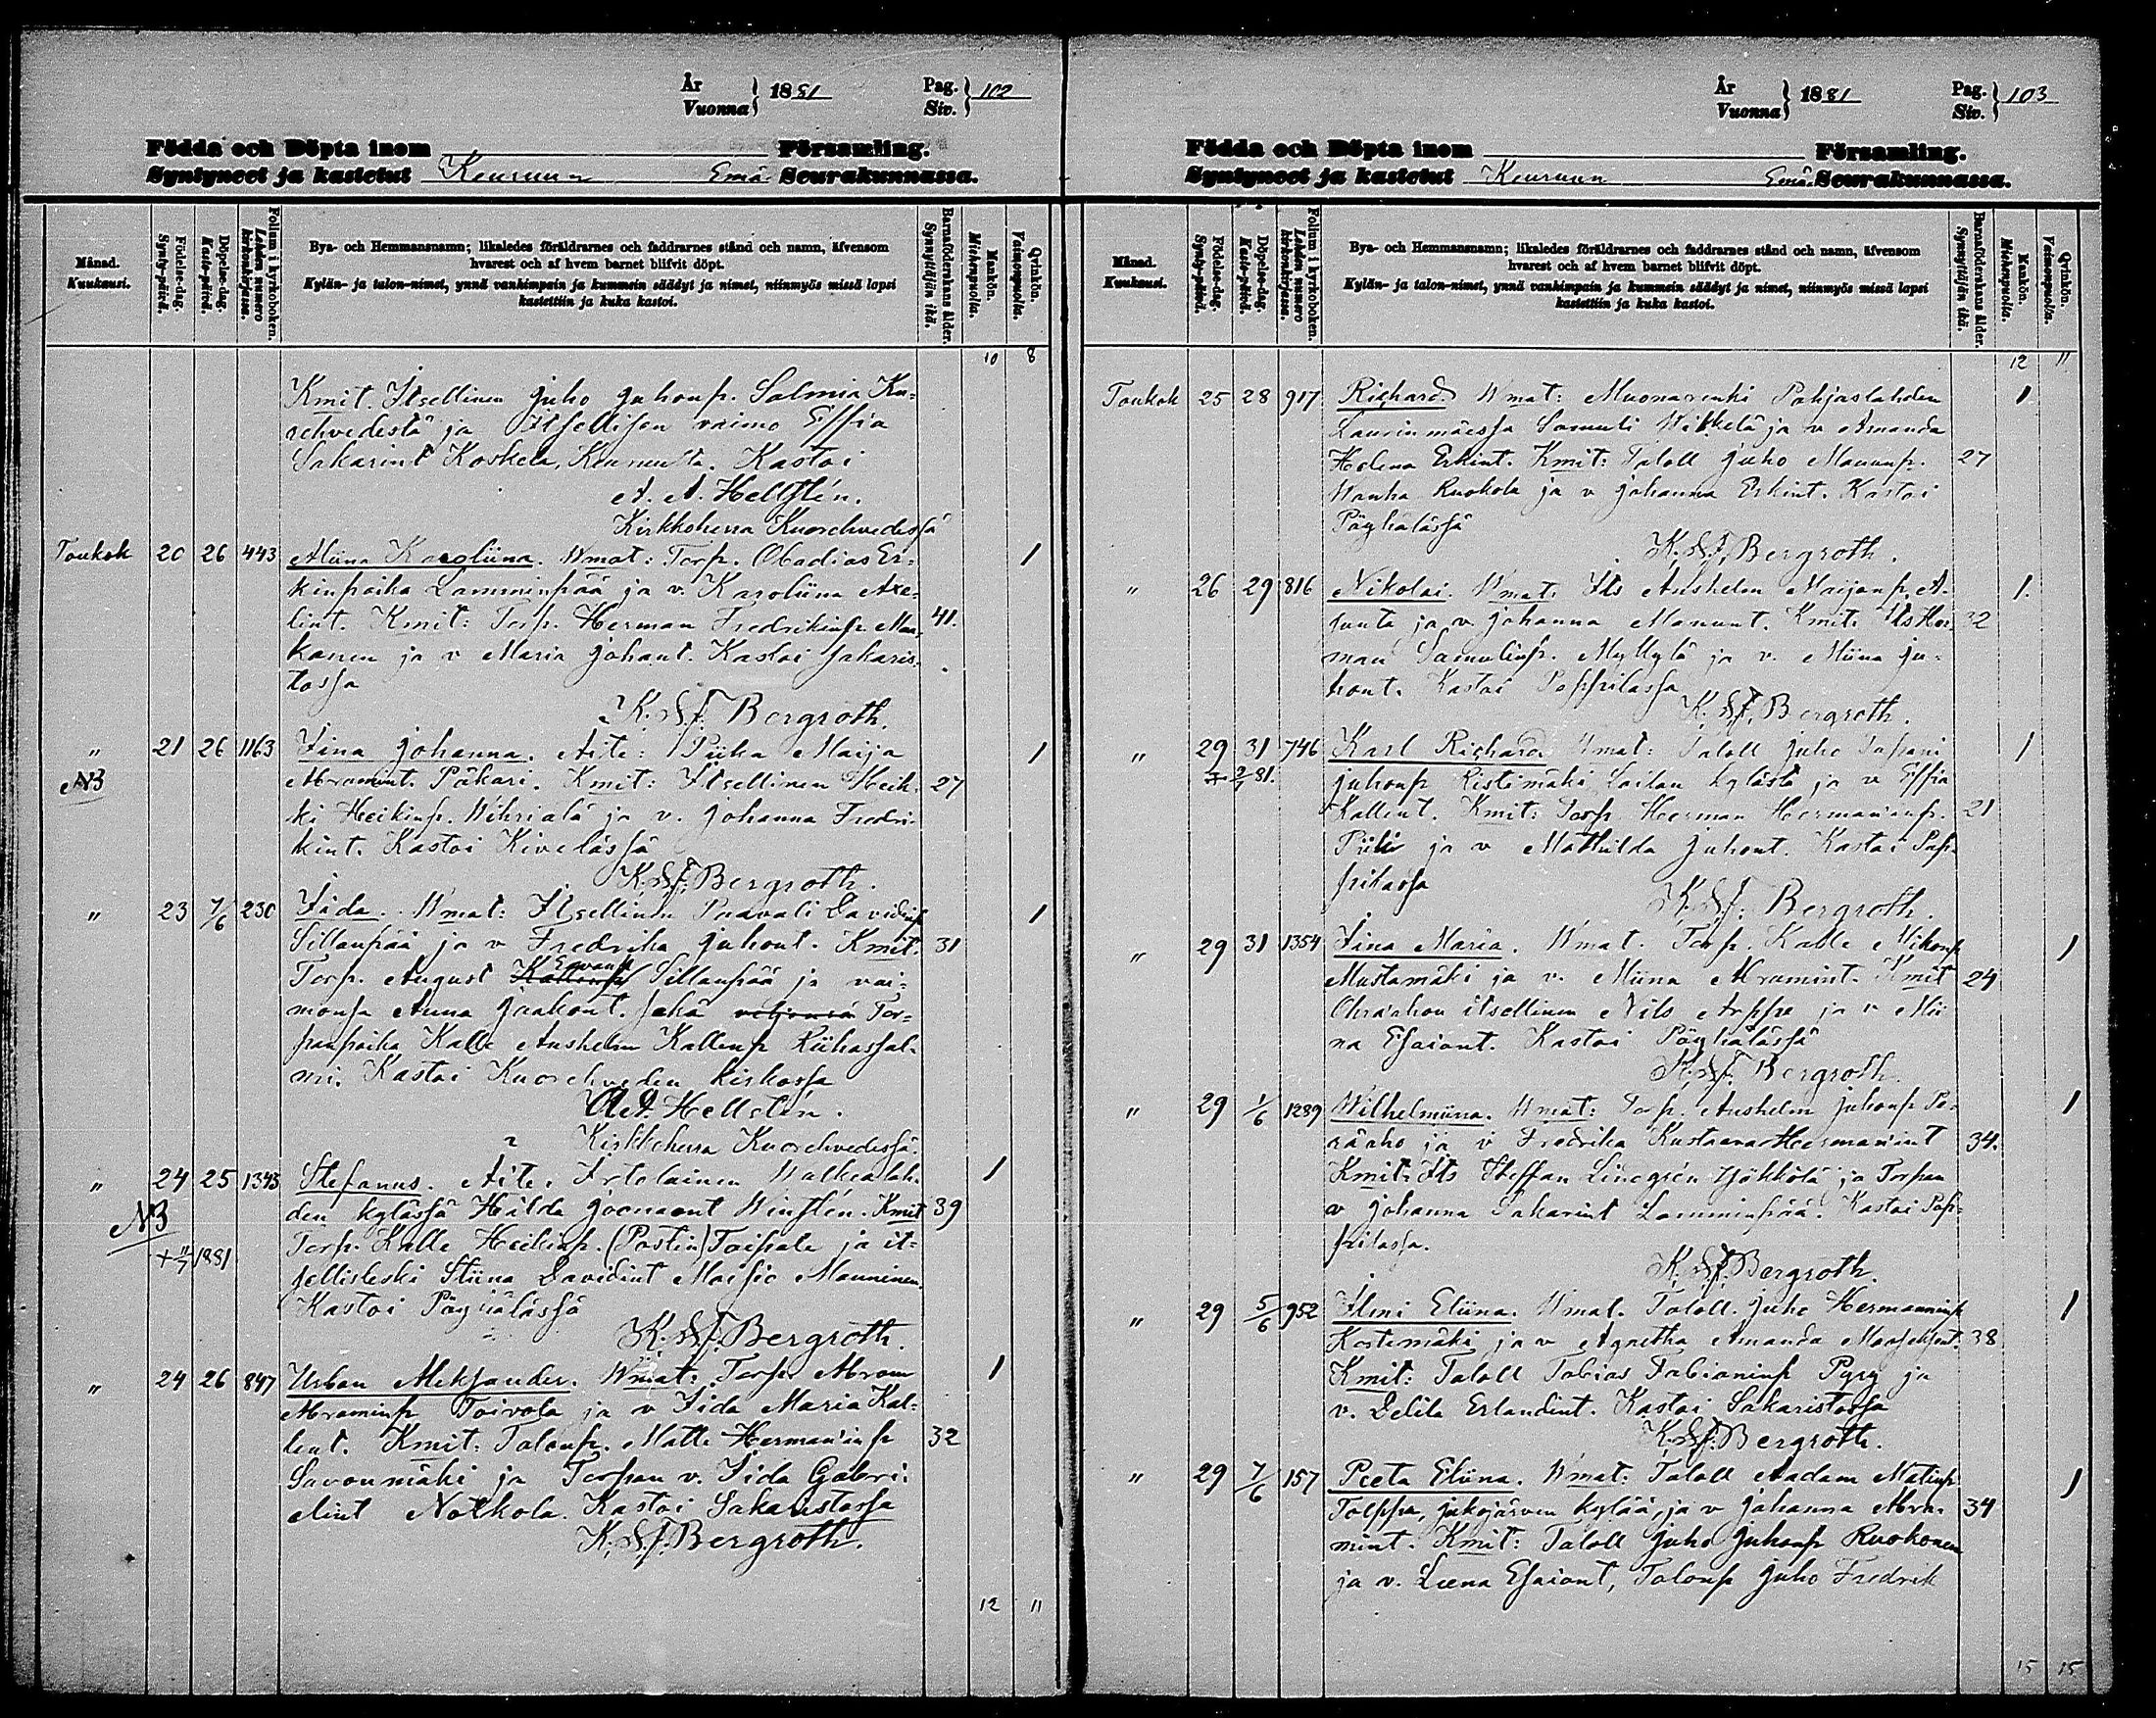 År
Vuonna } 1881
Pag.
Siv. } 102
Födda och Döpta inom Församling.
Syntyneet ja kastetut Keuruun Emä Seurakunnassa.
Månad.
Kuukausi.
Födelse-dag.
Synty-päivä.
Döpelse-dag.
Kaste-päivä.
Folium i kyrkoboken.
Lehden numero kirkonkirjassa.
Bya- och Hemmansnamn; likaledes föräldrarnes och faddrarnes stånd och namn, äfvensom
hvarest och af hvem barnet blifvit döpt.
Kylän- ja talon-nimet, ynnä vanhimpain ja kummein säädyt ja nimet, niinmyös missä lapsi
kastettiin ja kuka kastoi.
Barnaföderskans ålder.
Synnyttäjän ikä.
Mankön.
Miehenpuolia.
Qvinkön.
Vaimonpuolia.
10 8
Kmit. Itsellinen Juho Juhonp. Salmia Ku-
rehvedestä ja Itsellisen vaimo Effia
Sakarint Koskela, Keuruulta. Kastoi
A. A. Hellstén.
Kirkkoherra Kuorehvedessä
Toukok 20 26 443 Miina Karoliina. Wmat: Torp. Obadias Er- 1
kinpoika Lamminpää ja v. Karoliina Axe-
lint. Kmit: Torp. Herman Fredrikinp. Man- 41.
kanen ja v Maria Johant. Kastoi Sakaris-
tossa
K. S. J. Bergroth.
" 21 26 1163 Iina Johanna. Äite: Piika Maija 1
NB Abramint. Päkari. Kmit: Itsellinen Heik- 27
ki Heikinp. Wihriälä ja v. Johanna Fredri-
kint. Kastoi Kivelässä
K. S. J. Bergroth.
" 23 7/6 230 Iida. Wmat: Itsellinen Paavali Davidinp 1
Sillanpää ja v Fredrika Juhont. Kmit. 31
Torp. August Sillanpää ja vai-
monsa Anna Jaakont. Sekä Tor-
panpoika Kalle Anshelm Kallenp Riihassal-
mi. Kastoi Kuorehveden kirkossa
A. A. Hellstén.
Kirkkoherra Kuorehvedessä.
" 24 25 1343 Stefanus. Äite: Irtolainen Walkealah- 1
NB den kylässä Hilda Joonaont Winstén. Kmit 39
+ 11/7 1881 Torp. Kalle Heikinp. (Postin) Taipale ja it-
sellisleski Stiina Davidint Maisio Manninen.
Kastoi Pöyhölässä
K. S. J. Bergroth.
" 24 26 847 Urban Aleksander. Wmat: Torp. Abram 1
Abraminp Toivola ja v Iida Maria Kal-
lent. Kmit: Talonp. Matti Herman'inp 32
Savonmäki ja Torpan v. Iida Gabri-
elint Notkola. Kastoi Sakaristossa
K. S. J. Bergroth.
12 11
År
Vuonna } 1881
Pag.
Siv. } 103
Födda och Döpta inom Församling.
Syntyneet ja kastetut Keuruun Emä Seurakunnassa.
Månad.
Kuukausi.
Födelse-dag.
Synty-päivä.
Döpelse-dag.
Kaste-päivä.
Folium i kyrkoboken.
Lehden numero kirkonkirjassa.
Bya- och Hemmansnamn; likaledes föräldrarnes och faddrarnes stånd och namn, äfvensom
hvarest och af hvem barnet blifvit döpt.
Kylän- ja talon-nimet, ynnä vanhimpain ja kummein säädyt ja nimet, niinmyös missä lapsi
kastettiin ja kuka kastoi.
Barnaföderskans ålder.
Synnyttäjän ikä.
Mankön.
Miehenpuolia.
Qvinkön.
Vaimonpuolia.
12 11
Toukok 25 28 917 Richard Wmat: Muonarenki Pohjaslahden 1
Laurinmäessä Samuli Wikkelä ja v Amanda
Helena Erkint. Kmit: Taloll Juho Manunp. 27
Wanha Ruokola ja v Johanna Erkint. Kastoi
Pöyhölässä
K. S. J. Bergroth.
" 26 29 816 Nikolai. Wmat. Its Anshelm Maijanp. A- 1.
sunta ja v. Johanna Manunt. Kmit. Its Her- 32
man Samulinp. Myllylä ja v. Miina Ju-
hont. Kastoi Pappilassa
K. S. J. Bergroth.
" 29 31 746 Karl Richard Wmat: Taloll Juho Tapani 1
+ 2/7 81. Juhonp Ristimäki Loilan kylästä ja v Effia
Kallent. Kmit: Torp Herman Herman'inp. 21
Piili ja v Mathilda Juhont. Kastoi Pap-
pilassa
K. S. J. Bergroth.
" 29 31 1354 Iina Maria. Wmat. Torp. Kalle Mikonp 1
Mustamäki ja v. Miina Abramint. Kmit 24
Ohra'ahon itsellinen Nils Arppe ja v Mii
na Esaiant. Kastoi Pöyhölässä
K. S. J. Bergroth.
" 29 1/6 1289 Wilhelmiina. Wmat: Torp. Anshelm Juhonp Pa- 1
rääho ja v Fredrika Kustaava Herman'int 34.
Kmit: Its Steffan Linegrén Yökkölä ja Torpan
v Johanna Sakarint Lamminpää. Kastoi Pap-
pilassa.
K. S. J. Bergroth.
" 29 5/6 952 Ilmi Eliina. Wmat. Taloll. Juho Hermanninp 1
Kostemäki ja v Agnetha Amanda 38
Kmit: Taloll Tobias Fabianinp Pyry ja
v. Delila Erlandint. Kastoi Sakaristossa
K. S. J. Bergroth.
" 29 7/6 157 Peeta Eliina. Wmat: Taloll Aadam Matinp 1
Tolppa, Jukojärven kylää, ja v Johanna Abra- 34
mint. Kmit: Taloll Juho Juhonp Ruokonen
ja v. Leena Esaiant, Talonp Juho Fredrik
15 15